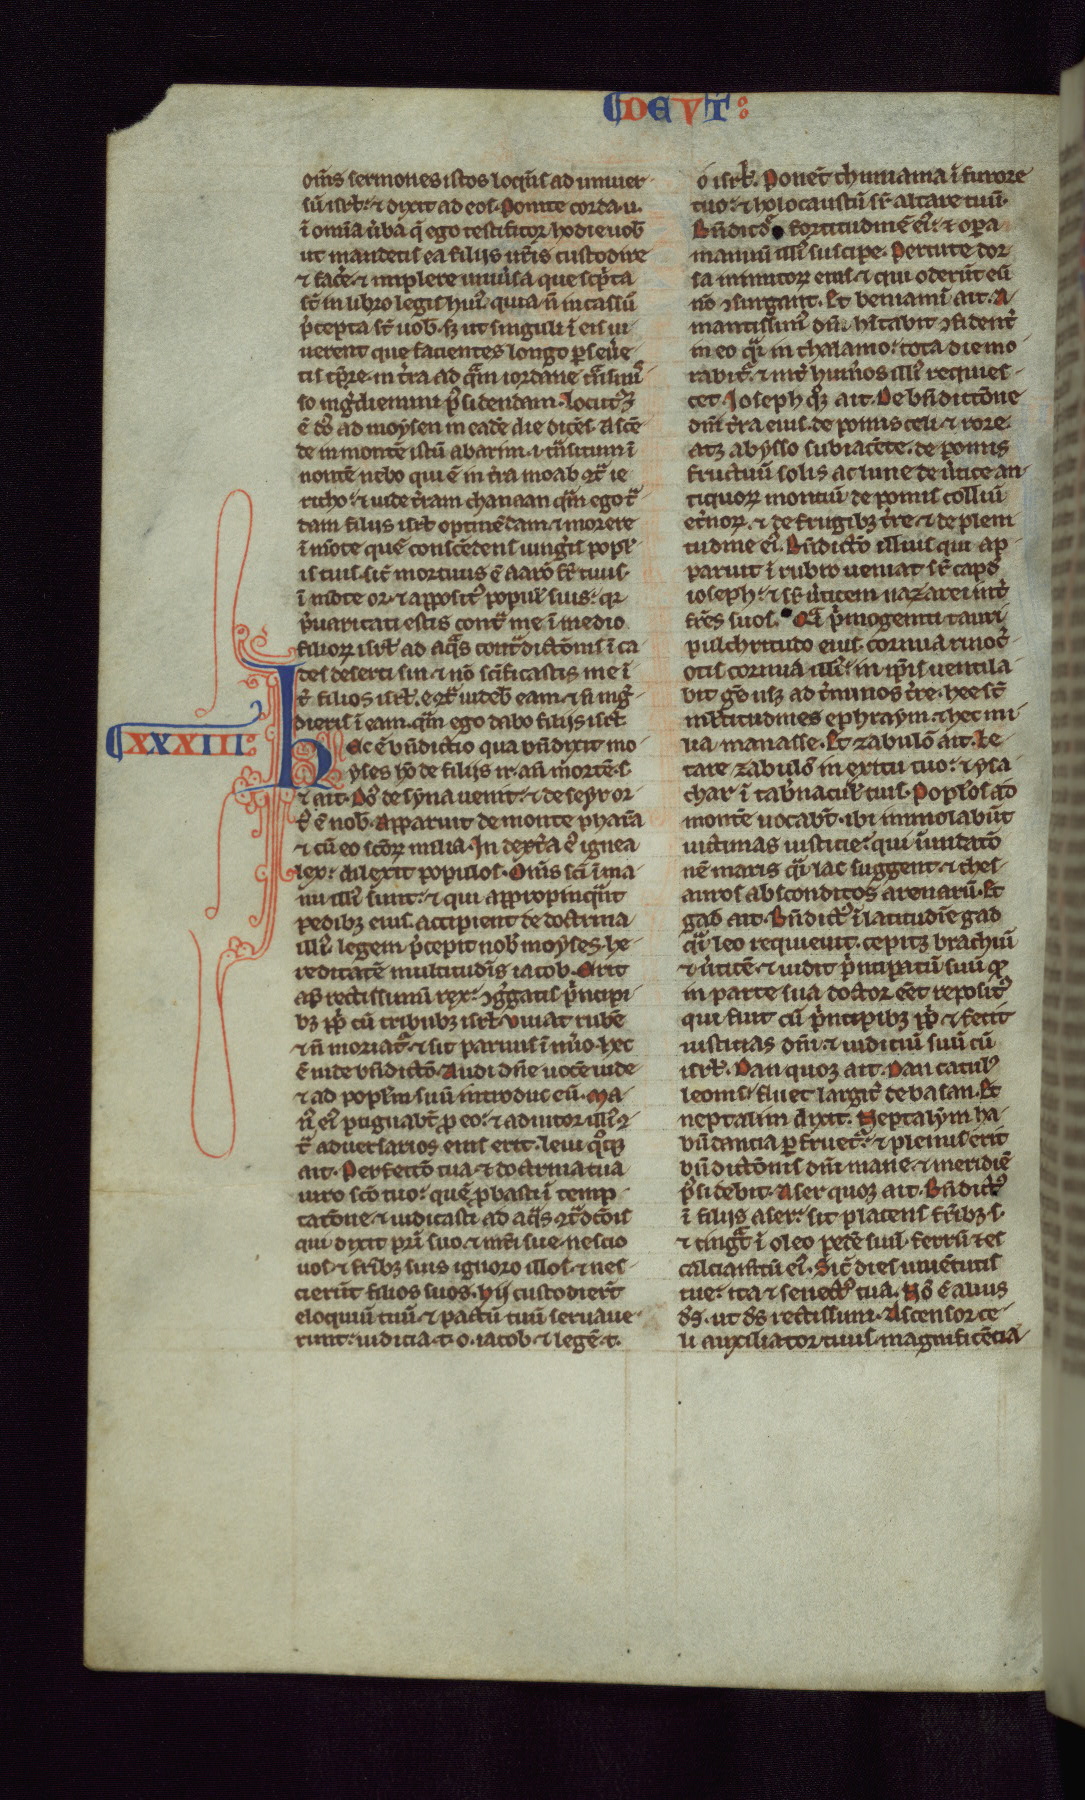 DEUT:
om̄s sermones istos loq̄ns ad uniuer
sū isrł. ⁊ dixit ad eos. Ponite corda .u.
ī omīa ūba q̄ ego testificor hodie uob̄
ut mandetis ea filiis ur̄is custodire
⁊ facē. ⁊ implere uniūsa que sc̄pta
st̄ in libro legis hui᷒. quia n̄ incassū
p̄cepta st̄ uob̄. sȝ ut singuli ī eis ui
uerent que facientes longo ꝑseūe
tis tꝑre. in t̄ra ad q̄m iordane t̄nsmis
so ing̃diemini p̄ sidendam. Locutꝰqȝ
ē dn̄s ad moysen in eadē die dicēs. Ascē
de in montē istū abarim .i. t̄nsitum ī
montē nebo qui ē in t̄ra moab ꝯt̄ ie
richo. ⁊ uide t̄ram chanaan q̄m ego t̄
dam filiis isrł optinēdam. ⁊ morere
ī mōte quē conscēdens iung̃is popl̄
is tuis. sic̄ mortuus ē aarō fr̄ tuus.
ī mōte or. ⁊ apposit᷒ popul̄ suis. qr
p̄uaricati estis cont̄ me ī medio
filiorꝝ isrł ad aq̄s cont̄dict̄onis ī ca
des deserti sin. ⁊ nō sc̄ificastis me ī
t̄ filios isrł. eꝯt̄ uideb᷒ eam. ⁊ n̄ ing̃
dieris ī eam. q̄m ego dabo filiis isrł.
XXXIII:
Hec ē bn̄dictio qua bn̄dixit mo
yses hō dei filiis ir. añ mortē .s.
⁊ ait. Dn̄s de syna uenit. ⁊ de seyr or
t᷒ ē nob̄. Apparuit de monte pharā
⁊ cū eo sc̄orꝝ milia. In dext̄a ei᷒ ignea
lex. dilexit populos. Om̄s sc̄i ī ma
nu illi᷒ sunt. ⁊ qui appropinq̄nt
pedibȝ eius. accipient de doctrina
illi᷒. legem p̄cepit nob̄ moyses. he
reditatē multitudīs iacob. Erit
apd̄ rectissimū rex. ꝯg̃gatis p̄ncipi
bȝ ppl̄i cū tribubȝ isrł. Viuat rubē
⁊ n̄ moriat᷒. ⁊ sit paruus ī nūo. hec
ē iude bn̄dict̄o. Audi dn̄e uocē iude
⁊ ad popl̄m suū introduc eū. Ma
n᷒ ei᷒ pugnabt̄ ꝓ eo. ⁊ adiutor illi᷒ ꝯ
t̄ aduersarios eius erit. leui q̊qȝ
ait. Perfect̄o tua. ⁊ doctrina tua
uiro sc̄o tuo. quē ꝓbasti ī temp
tatōne. ⁊ iudicasti ad aq̄s ꝯt̄dict̄ois
qui dixit pr̄i suo. ⁊ mr̄i sue. nescio
uos. ⁊ fr̄ibȝ suis ignoro illos. ⁊ nes
cierūt filios suos. hij custodierūt
eloquiū tuū. ⁊ pactū tuū seruaue
runt. iudicia .t. o. iacob. ⁊ legē .t.
o isrł. Ponēt thimiama ī furore
tuo. ⁊ holocaustū sr̄ altare tuū.
Bn̄dic dn̄e fortitudinē ei᷒. ⁊ opera
manuū illi᷒ suscipe. Percute dor
sa inimicorꝝ eius. ⁊ qui oderūt eū
nō ꝯsurgant. Et beniamī ait. A
mantissim᷒ dn̄i. h̄itabit ꝯfident̄
in eo q̄si in thalamo. tota die mo
rabit᷒. ⁊ int̄ hum̄os illi᷒ requies
cet. Ioseph qꝫ ait. De bn̄dictōne
dn̄i t̄ra eius. de pomis celi. ⁊ rore.
atqȝ abysso subiacēte. de pomis
fructuū solis ac lune. de ūtice an
tiquorꝝ montiū. de pomis colliū
et̄norꝝ. ⁊ de frugibȝ t̄re. ⁊ de pleni
tudine ei᷒. Bn̄dict̄o illius qui ap
paruit ī rubro ueniat sr̄ caput
ioseph. ⁊ sr̄ ūticem nazarei int̄
fr̄es suos. Q̄si p̄mogeniti tauri
pulchritudo eius. cornua rinoc̄
otis cornua illi᷒. in ip̄is uentila
bit gn̄s usqȝ ad t̄minos t̄re. hee st̄
ml̄titudines ephraym. ⁊ hec mi
lia manasse. Et zabulō ait. Le
tare zabulō in exitu tuo. ⁊ ysa
char ī tab̄naculis tuis. Popl̄os ad
montē uocabt̄. ibi immolabūt
uictimas iusticie. qui inundatō
nē maris q̄si lac suggent. ⁊ thes
auros absconditos arenarū. Et
gad ait. Bn̄dict᷒ ī latitudīe gad
q̄si leo requieuit. cepitqȝ brachiū
⁊ ūticē. ⁊ uidit p̄ncipatū suū qd̄
in parte sua doctor eēt reposit᷒
qui fuit cū p̄ncipibȝ ppl̄i. ⁊ fecit
iusticias dn̄i. ⁊ iudiciū suū cū
isrł. Dan quoqȝ ait. Dan catul᷒
leonis. fluet largit̄ de basan. Et
neptalim dixit. Neptalym ha
būdancia ꝑfruet᷒. ⁊ plenus erit
bn̄dictōnis dn̄i mare. ⁊ meridiē
p̄sidebit. Aser quoqȝ ait. Bn̄dict᷒
ī filiis aser. sit placens fr̄ibȝ .s.
⁊ tingat ī oleo pedē suū. ferrū ⁊ es
calciam̄tū ei᷒. Sic̄ dies iuuētutis
tue. ita ⁊ senect᷒ tua. Nō ē alius
ds̄. ut ds̄ rectissimi. Ascensor ce
li auxiliator tuus. magnificēcia